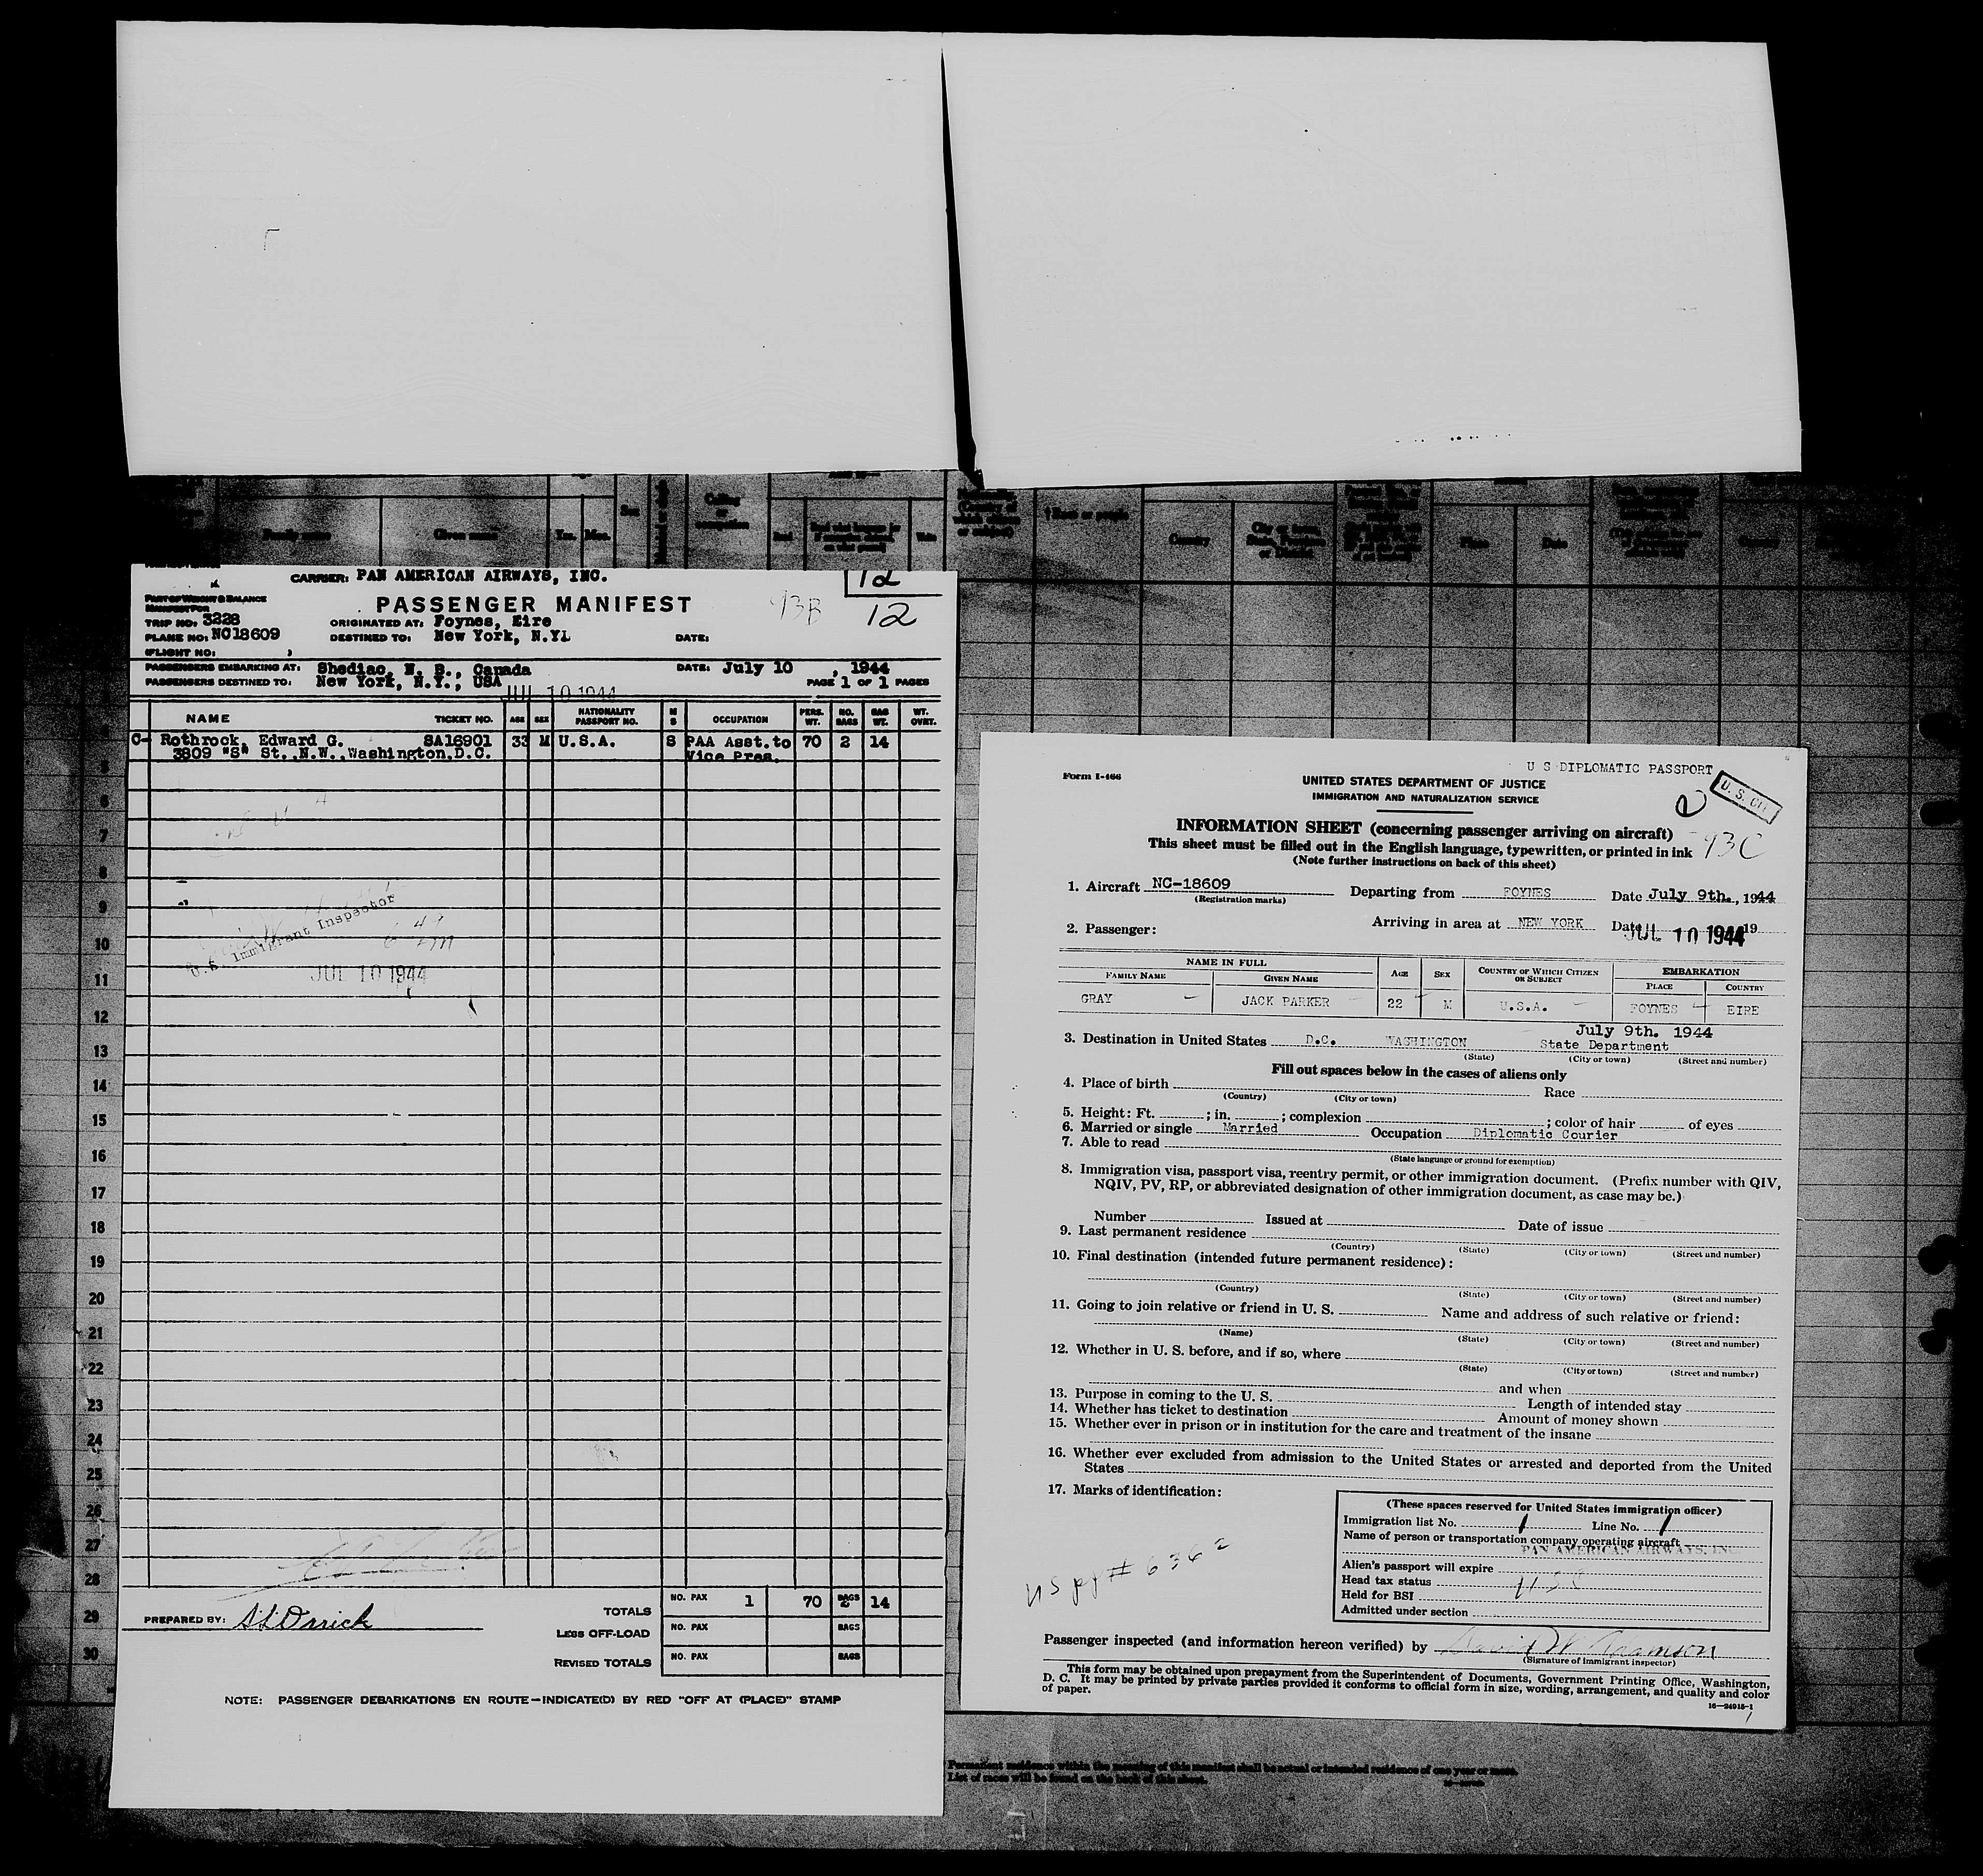 CARRIER: PAN AMERICAN AIRWAYS, INC.
12
PART OF WEIGHT & BALANCE
MANIFEST FOR
PASSENGER MANIFEST
93B
12
TRIP NO: 3228
ORIGINATED AT: Foynes, Eire
PLANE NO: NC18609
DESTINED TO: New York, N.Y.
DATE:
(FLIGHT NO: )
PASSENGERS EMBARKING AT: Shediac, N. B., Canada
DATE: July 10, 1944
PASSENGERS DESTINED TO: New York, N.Y., USA
PAGE 1 OF 1 PAGES
JUL 10 1944
NAME TICKET NO. AGE SEX NATIONALITY PASSPORT NO. M S OCCUPATION PERS. WT. NO. BAGS BAG WT. WT. OVRT.
C- Rothrock, Edward G. SA16901 33 M U.S.A. S PAA Asst. to 70 2 14
3809 "S" St., N.W., Washington, D.C. Vice Pres.
4
5
6
7
8
9
10
11
12
13
14
15
16
17
18
19
20
21
22
23
24
25
26
27
28
29
30
U.S. Immigrant Inspector
JUL 10 1944
TOTALS NO. PAX 1 70 BAGS 2 14
PREPARED BY:
LESS OFF-LOAD NO. PAX BAGS
REVISED TOTALS NO. PAX BAGS
NOTE: PASSENGER DEBARKATIONS EN ROUTE—INDICATE(D) BY RED "OFF AT (PLACE)" STAMP
Family name
Given name
Yrs. Mos.
Sex
Calling or occupation
Read
Write
† Race or people
Country
City or town, State, Province or District
Place
Date
Country
U S DIPLOMATIC PASSPORT
Form I-466
UNITED STATES DEPARTMENT OF JUSTICE
U. S. CIT
IMMIGRATION AND NATURALIZATION SERVICE
INFORMATION SHEET (concerning passenger arriving on aircraft)
93C
This sheet must be filled out in the English language, typewritten, or printed in ink
(Note further instructions on back of this sheet)
1. Aircraft NC-18609 Departing from FOYNES Date July 9th., 1944
(Registration marks)
Arriving in area at NEW YORK Date JUL 10 1944 19
2. Passenger:
NAME IN FULL AGE SEX COUNTRY OF WHICH CITIZEN OR SUBJECT EMBARKATION
FAMILY NAME GIVEN NAME PLACE COUNTRY
GRAY JACK PARKER 22 M U.S.A. FOYNES EIRE
July 9th. 1944
3. Destination in United States D.C. WASHINGTON State Department
(State) (City or town) (Street and number)
Fill out spaces below in the cases of aliens only
4. Place of birth Race
(Country) (City or town)
5. Height: Ft. ; in. ; complexion ; color of hair of eyes
6. Married or single Married Occupation Diplomatic Courier
7. Able to read
(State language or ground for exemption)
8. Immigration visa, passport visa, reentry permit, or other immigration document. (Prefix number with QIV,
NQIV, PV, RP, or abbreviated designation of other immigration document, as case may be.)
Number Issued at Date of issue
9. Last permanent residence
(Country) (State) (City or town) (Street and number)
10. Final destination (intended future permanent residence):
(Country) (State) (City or town) (Street and number)
11. Going to join relative or friend in U. S. Name and address of such relative or friend:
(Name) (State) (City or town) (Street and number)
12. Whether in U. S. before, and if so, where
(State) (City or town) (Street and number)
and when
13. Purpose in coming to the U. S. Length of intended stay
14. Whether has ticket to destination Amount of money shown
15. Whether ever in prison or in institution for the care and treatment of the insane
16. Whether ever excluded from admission to the United States or arrested and deported from the United
States
17. Marks of identification:
(These spaces reserved for United States immigration officer)
Immigration list No. 1 Line No. 1
Name of person or transportation company operating aircraft
PAN AMERICAN AIRWAYS, INC
Alien's passport will expire
Head tax status USC
Held for BSI
Admitted under section
US pp # 6362
Passenger inspected (and information hereon verified) by
(Signature of immigrant inspector)
This form may be obtained upon prepayment from the Superintendent of Documents, Government Printing Office, Washington,
D. C. It may be printed by private parties provided it conforms to official form in size, wording, arrangement, and quality and color
of paper.
16—24915-1
Permanent residence within the meaning of this manifest shall be actual or intended residence of one year or more.
List of races will be found on the back of this sheet.